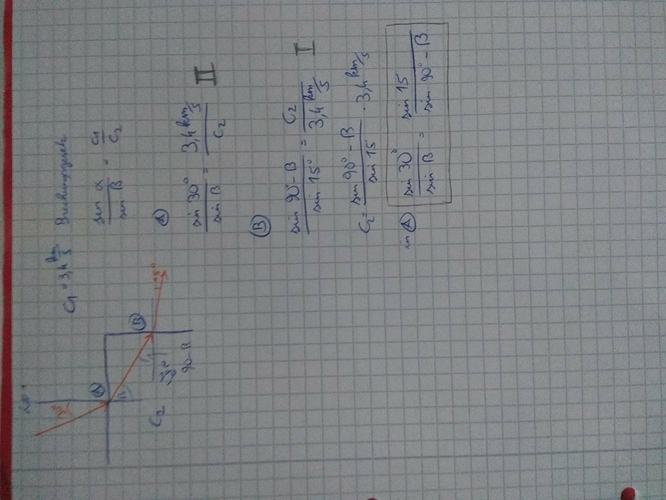 C₁ = 3,4 km/s Brechungsgesetz
sin α / sin β = C₁ / C₂
Ⓐ
sin 30° / sin β = 3,4 km/s / C₂ II
Ⓑ
sin 90° - β / sin 15° = C₂ / 3,4 km/s I
C₂ = sin 90° - β / sin 15 · 3,4 km/s
in Ⓐ sin 30° / sin β = sin 15 / sin 90° - β
Ⓐ
Ⓑ
C₂
90 - β